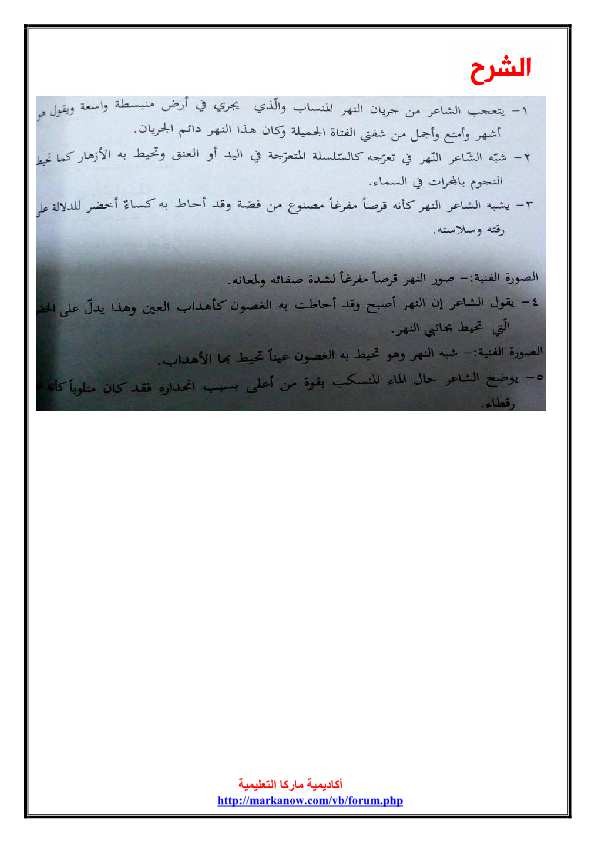 الشرح
١- يتعجب الشاعر من جريان النهر المنساب والّذي يجري في أرض منبسطة واسعة ويقول هو
أشهر وأمتع وأجمل من شفتي الفتاة الجميلة وكان هذا النهر دائم الجريان.
٢- شبّه الشّاعر النّهر في تعرّجه كالسّلسلة المتعرّجة في اليد أو العنق وتحيط به الأزهار كما تحيط
النجوم بالمجرات في السماء.
٣- يشبه الشاعر النهر كأنه قرصاً مفرغاً مصنوع من فضة وقد أحاط به كساءٌ أخضر للدلالة على
رقته وسلاسته.
الصورة الفنية:- صور النهر قرصاً مفرغاً لشدة صفائه ولمعانه.
٤- يقول الشاعر إن النهر أصبح وقد أحاطت به الغصون كأهداب العين وهذا يدلّ على
الّتي تحيط بجانبي النهر.
الصورة الفنية:- شبه النهر وهو تحيط به الغصون عيناً تحيط بها الأهداب.
٥- يوضح الشاعر حال الماء المنسكب بقوة من أعلى بسبب انحداره فقد كان متلوياً كأنه
رقطاء.
أكاديمية ماركا التعليمية
http://markanow.com/vb/forum.php